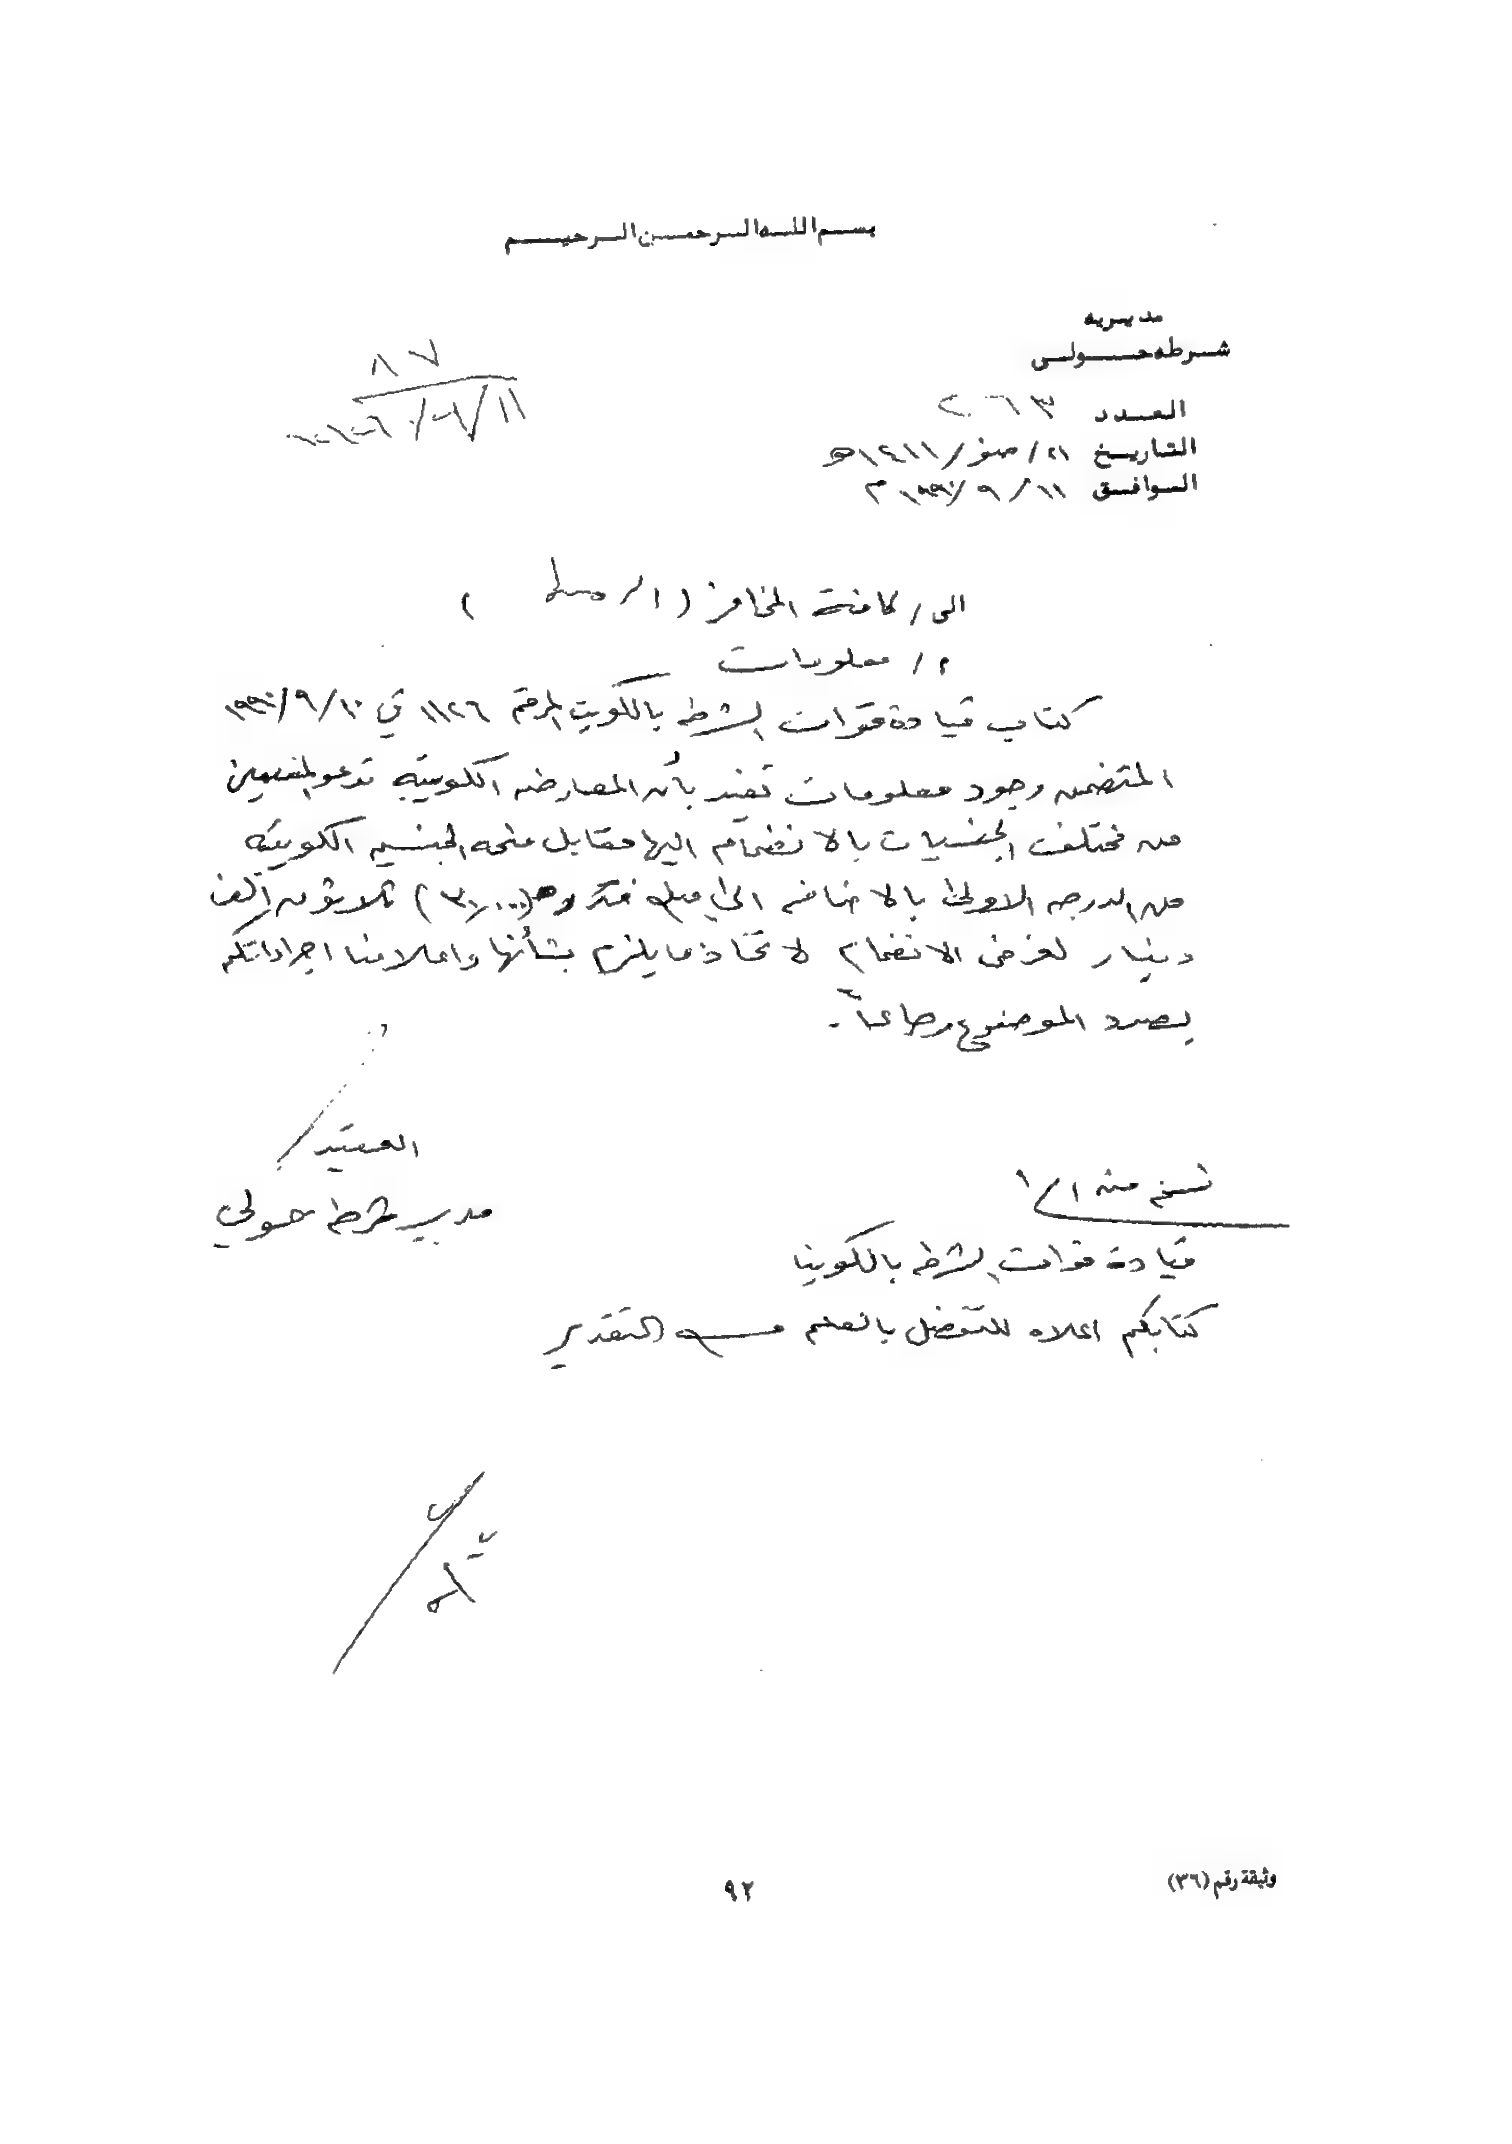 بسم الله الرحمن الرحيم
مديريه
شرطه حولي
العدد ٢٠٦٣
التاريخ ٢١/صفر/١٤١١هـ
الموافق ١١/٩/١٩٩٠م
٨٧
الى/ كافة المخافر ( )
م/ معلومات
كتاب قيادة قوات الشرطه بالكويت المرقم ١١٢٦ في ١٠/٩/١٩٩٠
المتضمن وجود معلومات تفيد بأن المعارضه الكويتيه تدعو المقيمين
من مختلف الجنسيات بالانضمام اليها مقابل منحه الجنسيه الكويتيه
من الدرجه الاولى بالاضافه الى مبلغ قدره (٣٠,٠٠٠) ثلاثون ألف
دينار لغرض الانضمام لاتخاذ مايلزم بشأنها واعلامنا اجراءاتكم
بصدد الموضوع رجاءاً.
العقيد
مدير شرطه حولي
نسخه منه الى/
قيادة قوات الشرطه بالكويت
كتابكم اعلاه للتفضل بالعلم مع التقدير
وثيقة رقم (٣٦)
٩٢